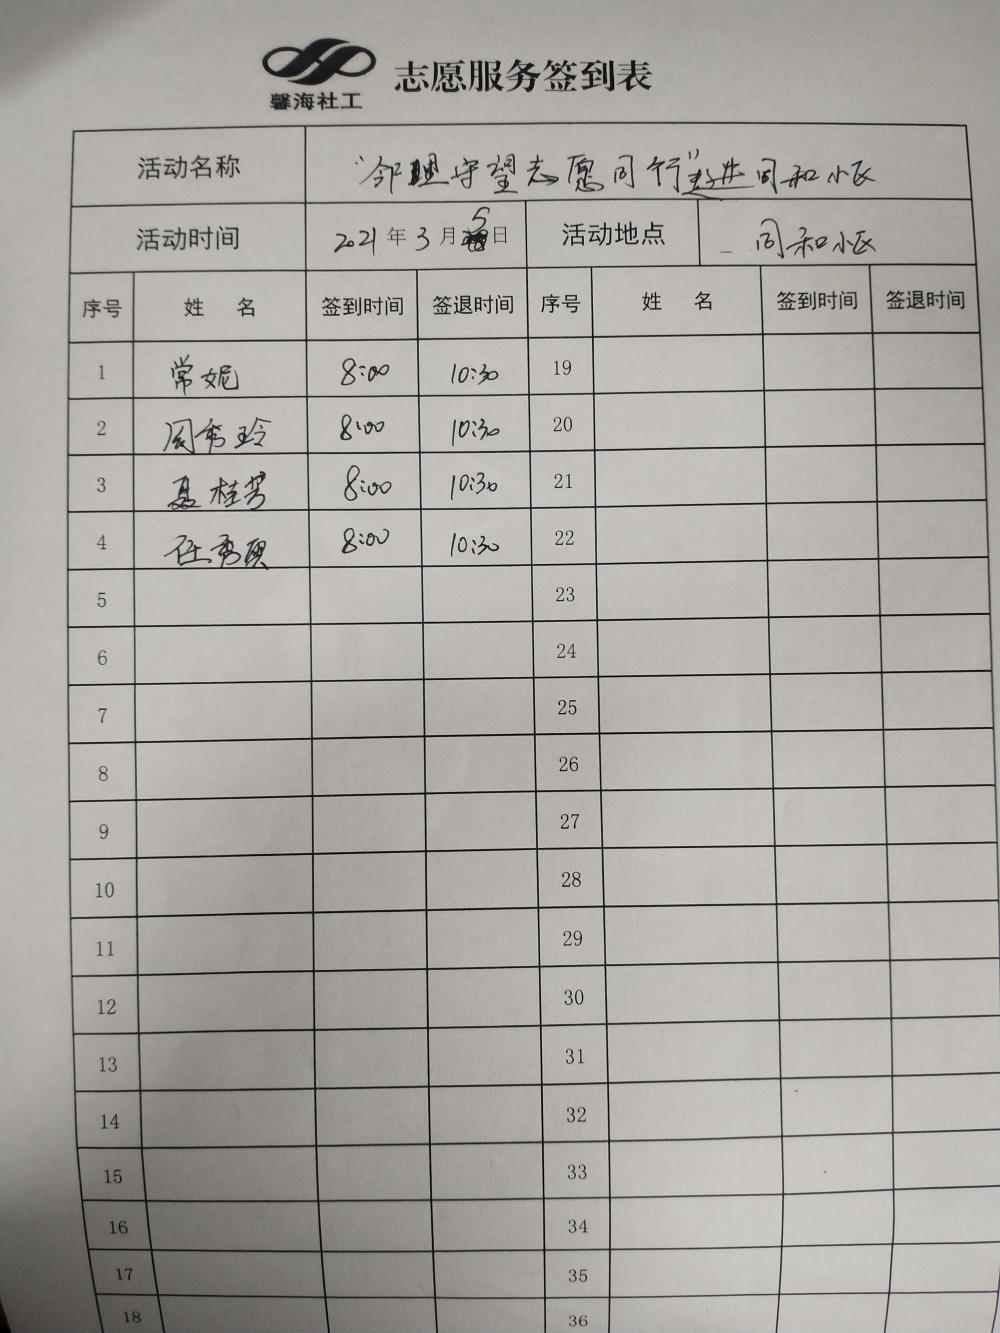 馨海社工
志愿服务签到表
活动名称 "邻里守望志愿同行"走进同和小区
活动时间 2021年3月5日 活动地点 同和小区
序号 姓名 签到时间 签退时间 序号 姓名 签到时间 签退时间
1 常妮 8:00 10:30 19
2 周秀玲 8:00 10:30 20
3 聂桂芳 8:00 10:30 21
4 任秀 8:00 10:30 22
5 23
6 24
7 25
8 26
9 27
10 28
11 29
12 30
13 31
14 32
15 33
16 34
17 35
18 36